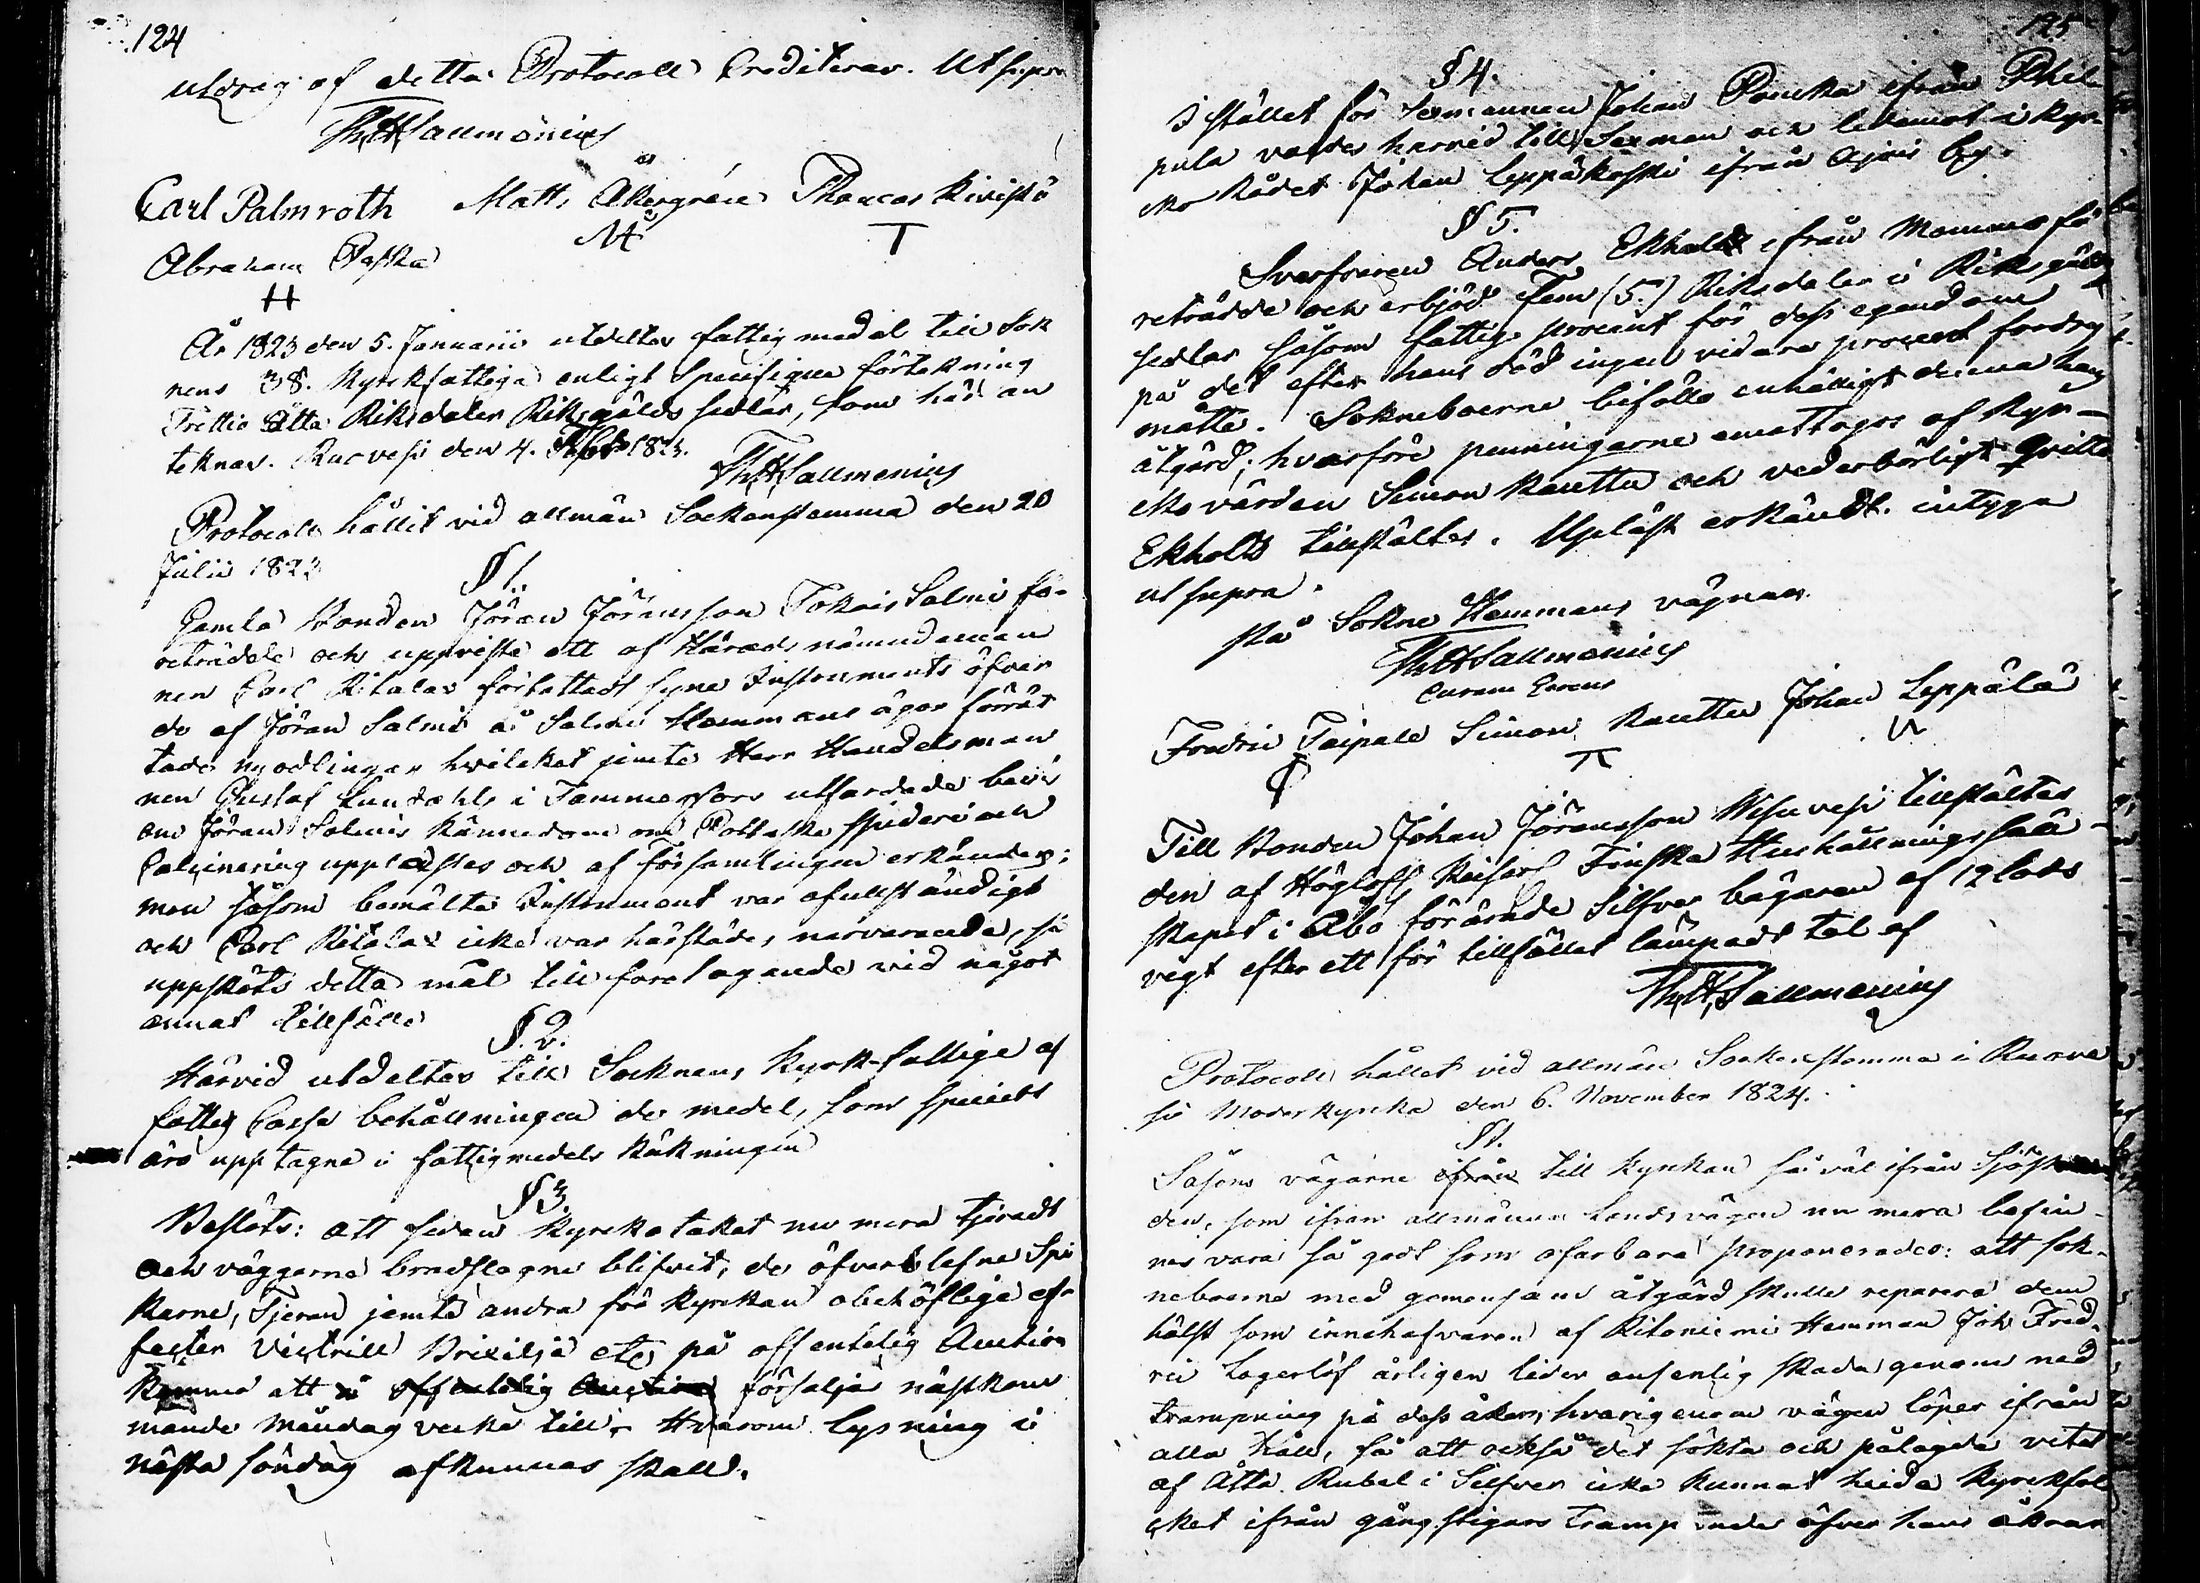 124
utdrag af detta Protocoll Crediteras. Ut supra
Th. H. Sallmenius
Carl Palmroth Matts Åkergrén Thomas Kivistö
M T
Abraham Paska
H
År 1823 den 5. Januarii utdeltes fattig medel till Sok
nens 38. Kyrkfattiga enligt Specifique förtekning
Trettio Åtta Riksdaler Riksgälds sedlar, som här an
teknas. Ruovesi den 4. 1823.
Th. H. Sallmenius
Protocoll hållit vid allmän Sockenstämma den 20
Julii 1823
§ 1.
Gamla Bonden Jöran Jöransson Salmi fö-
reträdde och uppviste ett af Häradsnämndeman
nen Carl Ritalax författadt syne Instruments öfver
de af Jöran Salmi å Salmi Hemmans ägor förrät
tade nyodlingar hvilcket jemte Herr Handelsman
nen Gustaf Lundahls i Tammerfors utfärdade bevis
om Jöran Salmis kännedom om Pottaske sjuderi och
Calcinering upplästes och af Församlingen erkändes;
men såsom bemälte Instrument var ofullständigt
och Carl Ritalax icke var härstädes närvarande, så
uppsköts detta mål till företagande vid något
annat tillfälle
§. 2.
Härvid utdeltes till Socknens Kyrk-fattige af
fattig Cassa behållningen de medel, som speciels
äro upptagne i fattigmedels Räkningen
§ 3.
Beslöts: att sedan Kyrkotaket nu mera tjäradt
och väggarna brädslagne blifvit, de öfverblefne Spi
karne, Tjäran jemte andra för Kyrkan obehöflige ef-
fecter Victrill etc på offentelig Auction
komma att försäljas nästkom
mande Måndag vecka till. Hvarom lysning i
nästa söndag afkunnas skall.
125
§ 4.
I stället för Sexmannen Johan Pouska ifrån Phil
pula valdes härvid till Sexman och ledamot i Kyr-
cko Rådet Johan Leppäkoski ifrån by.
§ 5.
Svarfvaren Anders Ekholtt ifrån Mommo fö
reträdde och erbjöd Fem (5.) Riksdaler i Riksgälds
sedlar såsom fattig procent för dess egendom
på det efter hans död ingen vidare procent fordras
måtte. Sokneboerne biföllo enhälligt denna hans
åtgärd; hvarföre penningarne emottogos af Kyr-
cko värden Simon Rautto och vederbörligt Qvitto
Ekholtt tillstältes. Upläst erkändt. intyga
ut supra.
På Sokne Hemmans vägnar.
Th. H. Sallmenius
Curam Gerens
Fredric Taipale Simon Rautto Johan Leppälä
Till Bonden Johan Jöransson Visuvesi tillstältes
den af Höglofl. Keiserl. Finska Hushållningssäll-
skapet i Åbo förärade Silfver bägaren af 12 lods
vigt efter ett för tillfället lämpadt tal af
Th. H. Sallmenius
Protocoll hållet vid allmän Sockenstämma i Ruove
si Moderkyrka den 6. November 1824.
§ 1.
Såsom vägarne till Kyrkan så väl ifrån Sjöstran
den, som ifrån allmänna Landsvägen nu mera befin-
nes vara så godt som ofarbara proponerades: att sok-
neboerne med gemensam åtgärd skulle reparera dem
hälst som innehafvaren af Ritoniemi Hemman Joh Fred-
ric Lagerlöf årligen lider ansenlig skada genom ned
trampning på dess åker, hvarigenom vägen löper ifrån
alla håll, så att också det sökta och pålagda vitet
af Åtta Rubel i Silfver icke kunnat hindra Kyrckfol
cket ifrån gångstigars trampande öfver hans åkrar